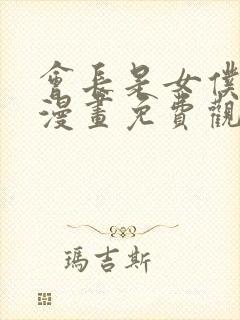 會長是女僕
漫畫免費觀
瑪吉斯